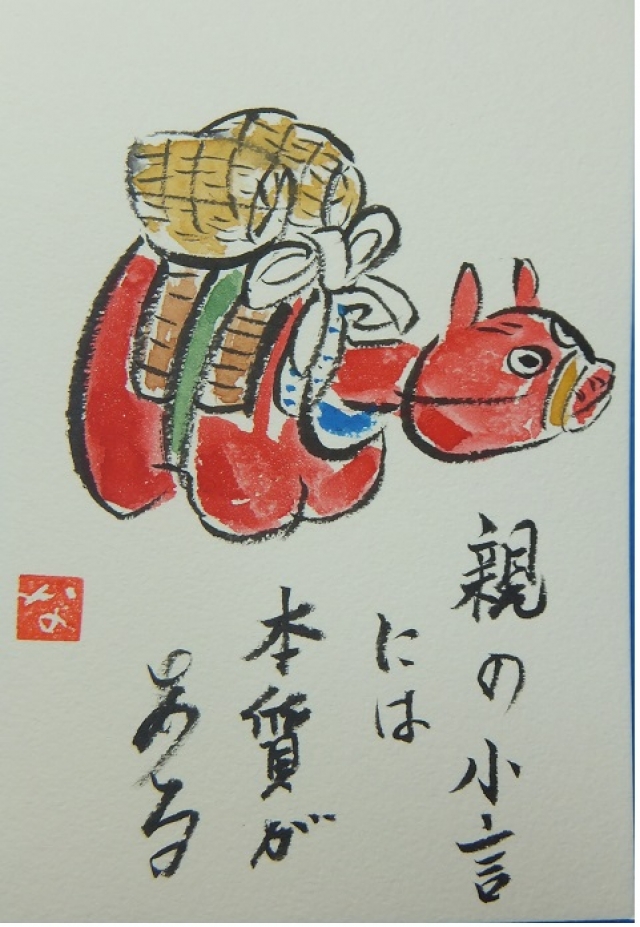 親の小言
には
本質が
ある
な